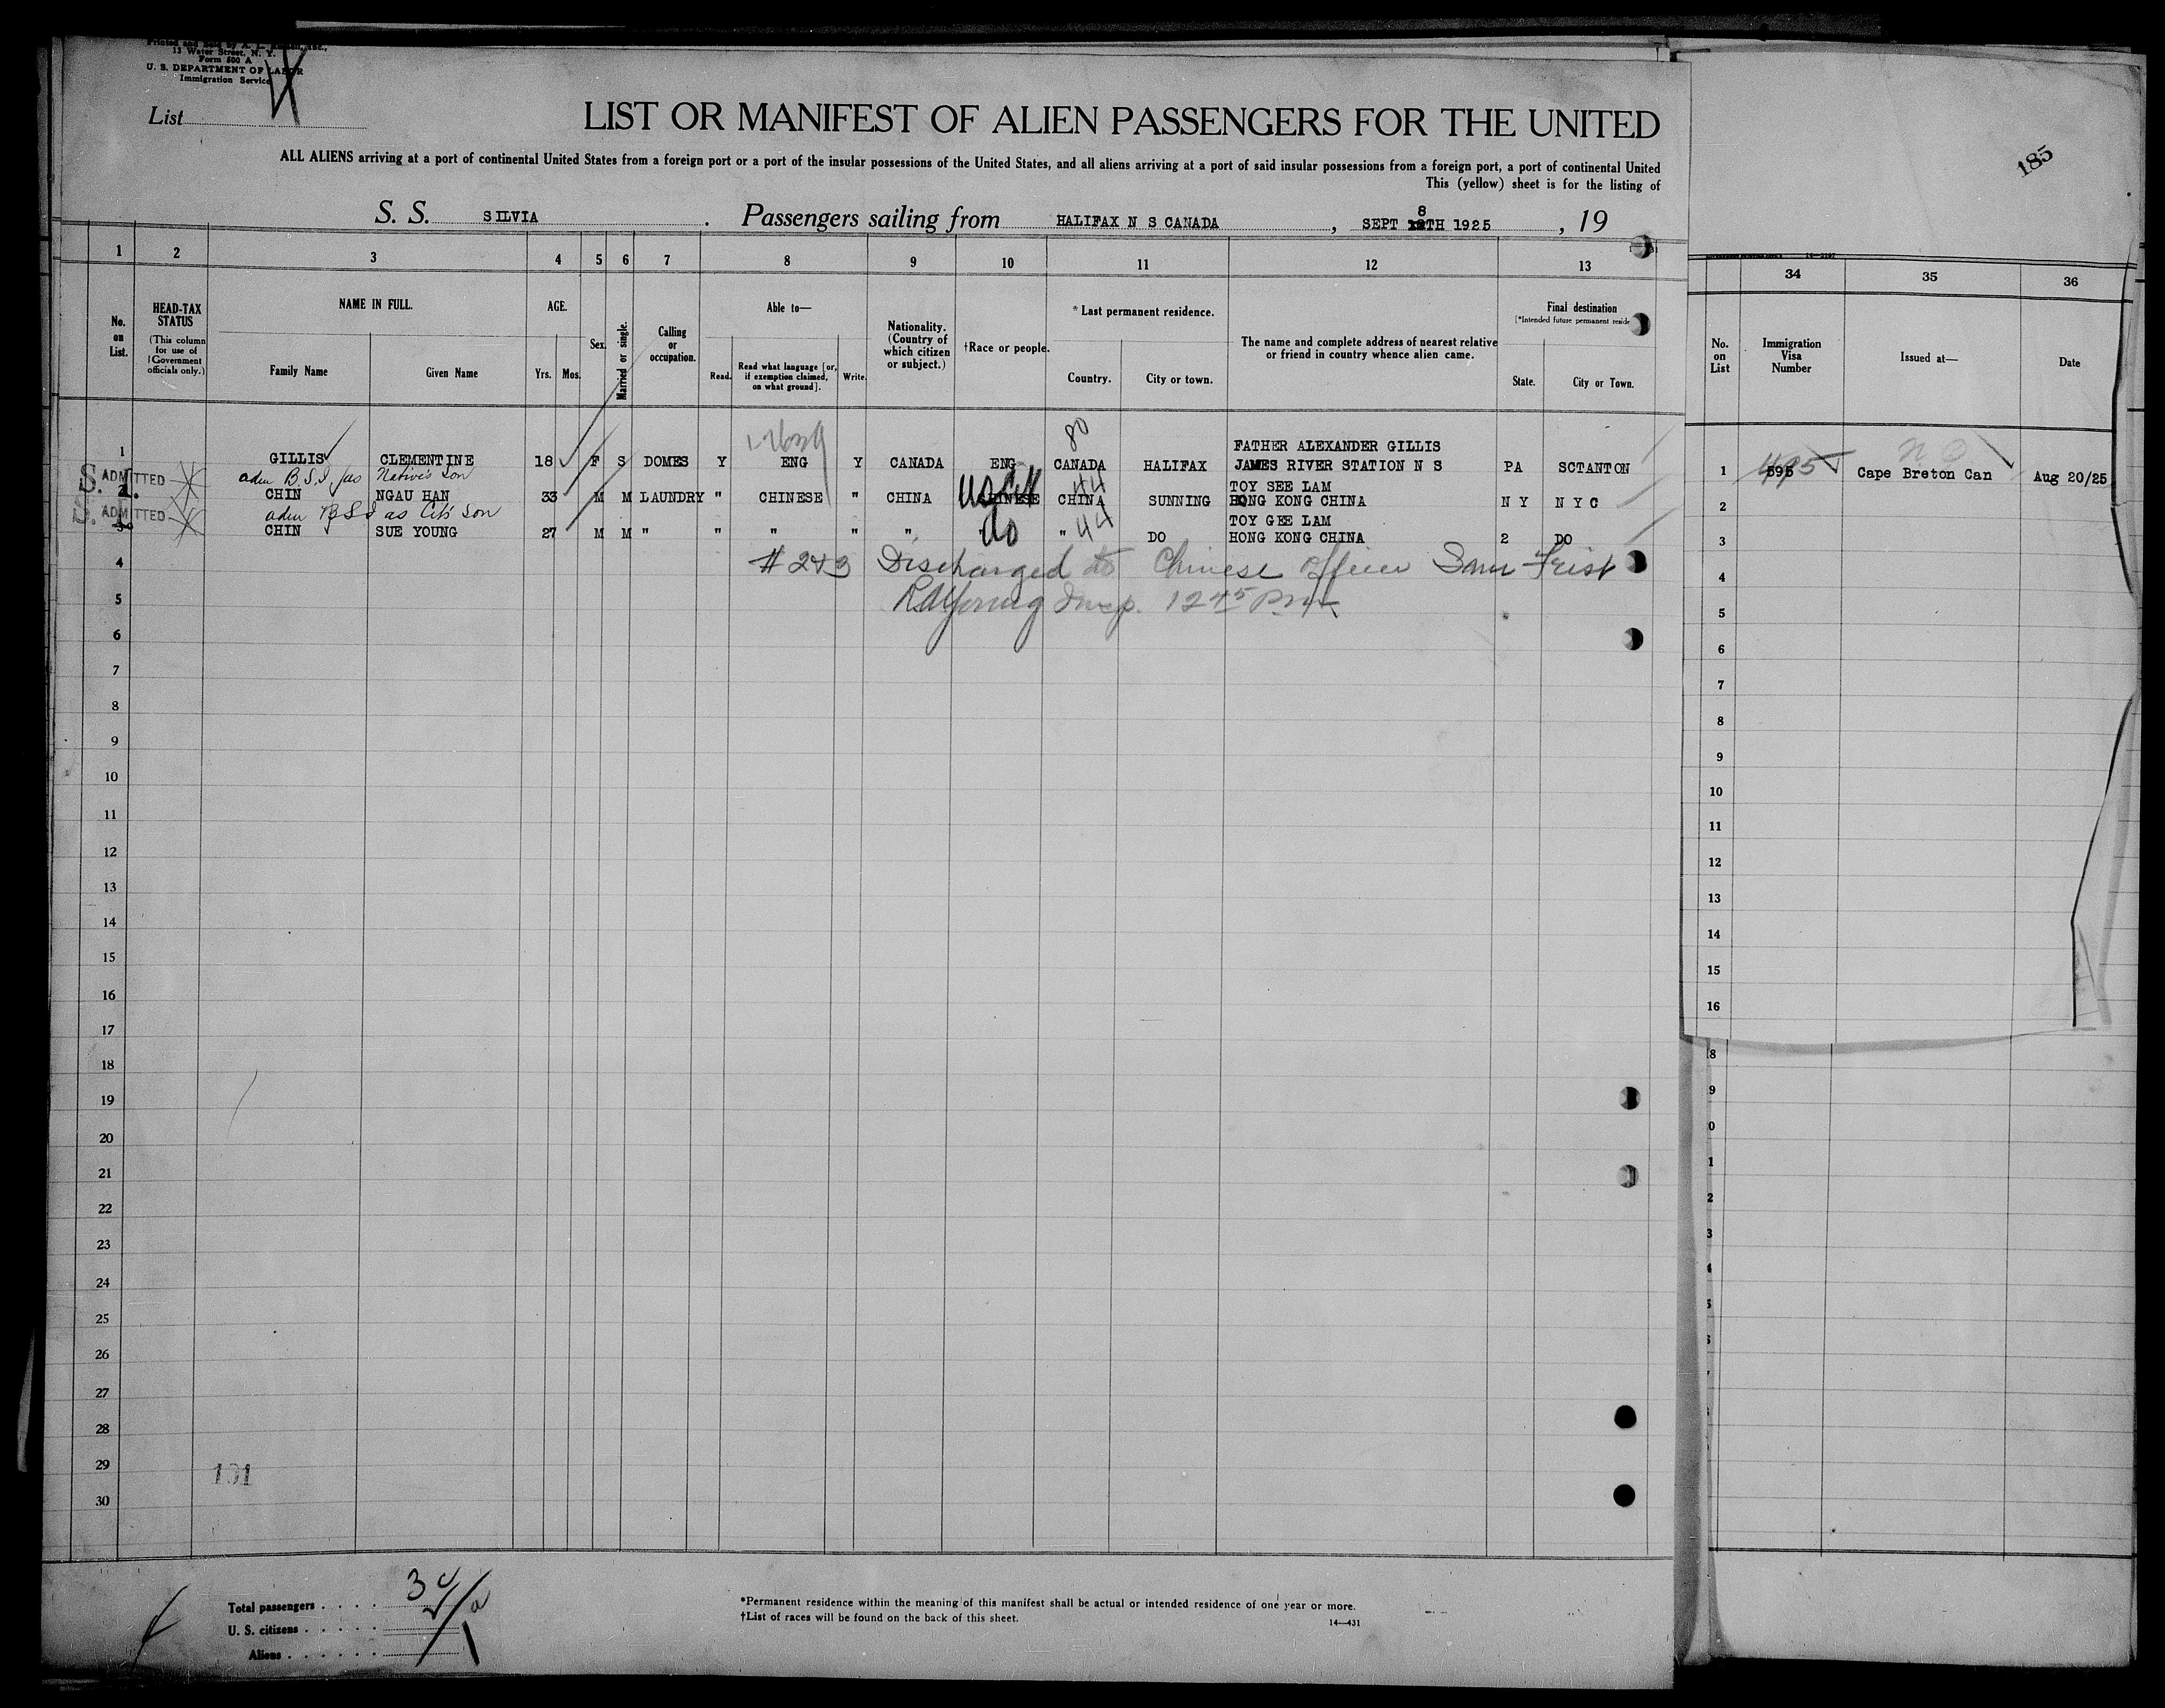 13 Water Street, N. Y.
Form 500 A
U. S. DEPARTMENT OF LABOR
Immigration Service
List
LIST OR MANIFEST OF ALIEN PASSENGERS FOR THE UNITED
185
ALL ALIENS arriving at a port of continental United States from a foreign port or a port of the insular possessions of the United States, and all aliens arriving at a port of said insular possessions from a foreign port, a port of continental United
This (yellow) sheet is for the listing of
S. S. SILVIA . Passengers sailing from HALIFAX N S CANADA , SEPT 8TH 1925 , 19
1 2 3 4 5 6 7 8 9 10 11 12 13 34 35 36
No. on List.
HEAD-TAX STATUS
(This column for use of Government officials only.)
NAME IN FULL.
Family Name
Given Name
AGE.
Yrs.
Mos.
Sex.
Married or single.
Calling or occupation.
Able to—
Read.
Read what language [or, if exemption claimed, on what ground].
Write.
Nationality. (Country of which citizen or subject.)
†Race or people.
*Last permanent residence.
Country.
City or town.
The name and complete address of nearest relative or friend in country whence alien came.
Final destination
State.
City or Town.
No. on List
Immigration Visa Number
Issued at—
Date
FATHER ALEXANDER GILLIS
1 GILLIS CLEMENTINE 18 F S DOMES Y ENG Y CANADA ENG CANADA HALIFAX JAMES RIVER STATION N S PA SCTANTON 1 595 495 Cape Breton Can Aug 20/25
80
N O
ADMITTED adm B.S.I. as Native's Son
TOY SEE LAM
CHIN NGAU HAN 33 M M LAUNDRY " CHINESE " CHINA CHINESE CHINA SUNNING HONG KONG CHINA N Y N Y C 2
44
ADMITTED adm B S I as Cit's Son
TOY GEE LAM
CHIN SUE YOUNG 27 M M " " " " " do " 44 DO HONG KONG CHINA 2 DO 3
4 # 2+3 Discharged to Chinese officer Sam Feist 4
5 Insp. 12 45 Pm 5
6 6
7 7
8 8
9 9
10 10
11 11
12 12
13 13
14 14
15 15
16 16
17
18
19
20
21
22
23
24
25
26
27
28
29
30
Total passengers . . . . 3
U. S. citizens . . . . .
Aliens . . . . . .
*Permanent residence within the meaning of this manifest shall be actual or intended residence of one year or more.
†List of races will be found on the back of this sheet.
14—431